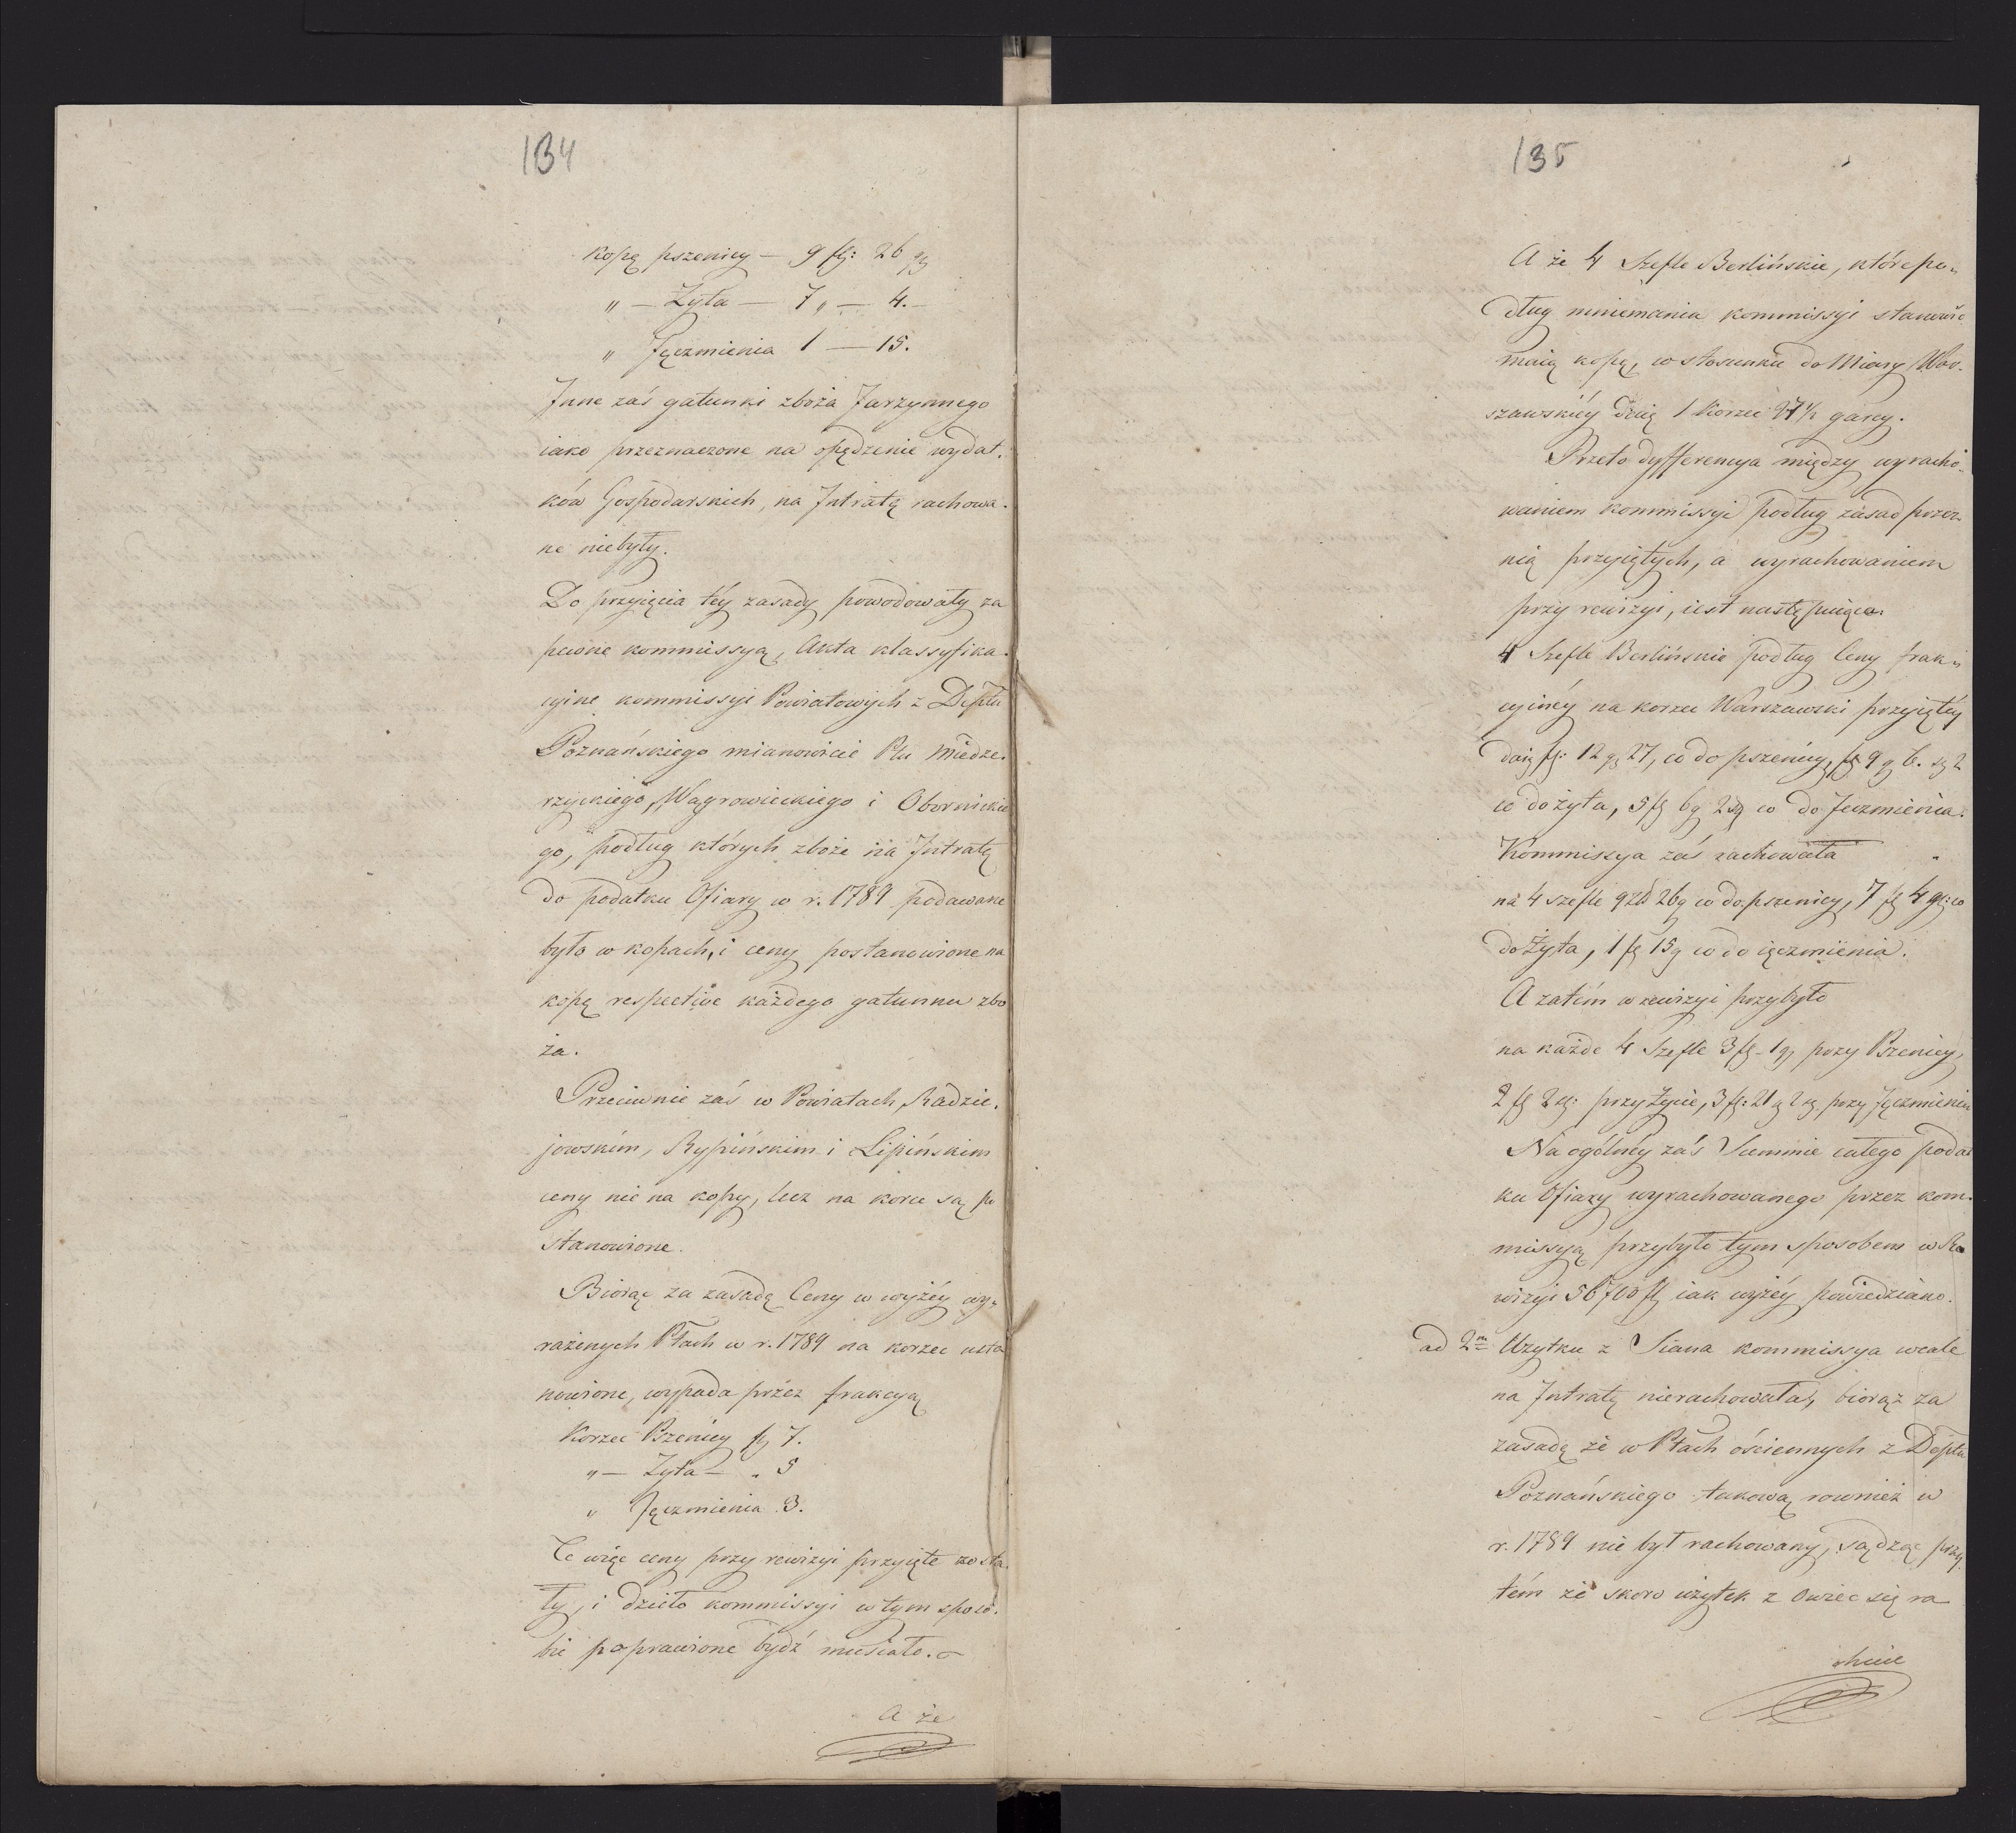 134
kopę pszenicy — 9 fl: 26 gr
„ — Żyta — 7 „ — 4. —
„ Jęczmienia 1 — 15.
Inne zaś gatunki zboża Jarzynnego
iako przeznaczone na opędzenie wydat.
ków Gospodarskich, na Intratę rachowa.
ne niebyły.
Do przyięcia téy zasady powodowały za
pewne kommissyą, Akta klassyfika.
cyine kommissyi Powiatowych z Deptu
Poznańskiego mianowicie Ptu Miedze.
rzyckiego, Wągrowieckiego i Obornickie
go, podług których zboże na Intratę
do podatku Ofiary w r. 1789 podawane
było w kopach, i ceny postanowione na
kopę respective każdego gatunku zbo
ża.
Przeciwnie zaś w Powiatach Radzie.
jowskim, Rypińskim i Lipińskim
ceny nie na kopy, lecz na korce są po
stanowione.
Biorąc za zasadę Ceny w wyżéy wy„
rażonych Ptach w r. 1789 na korzec usta
nowione, wypada przez frakcyą
Korzec Pszenicy fl 7.
„ — Żyta — „ 5
„ Jęczmienia 3.
Te więc ceny przy rewizyi przyięte zosta.
ły, i dzieło kommissyi w tym sposo.
bie poprawione bydź musiało.
A że
135
A że 4 Szefle Berlińskie, które po„
dług mniemania kommissyi stanowić
maią kopę, w stosunku do Miary War.
szawskiéy dają 1 Korzec 27 1/2 garcy.
Przeto dyfferencya między wyracho„
waniem kommissyi podług zasad przez
nią przyiętych, a wyrachowaniem
przy rewizyi, iest następuiąca:
4 Szefle Berlińskie podług Ceny frak„
cyinéy na korzec Warszawski przyiętéy
daią fl: 12 gr 27, co do pszenicy, fl 9 g 6. sz 2
co do żyta, 5 fl 6 g 2 sz co do Jęczmienia.
Kommissya zaś rachowała
na 4 szefle 9 zł 26 g co do pszenicy, 7 fl 4 gr: co
do Żyta, 1 fl 15 g co do ięczmienia.
A zatém w rewizyi przybyło
na każde 4 Szefle 3 fl - 1 g przy Pszenicy,
2 fl 2 g: przy Życie, 3 fl: 21 g 2 sz przy Jęczmieniu
Na ogólnéy zaś Summie całego podat
ku Ofiary wyrachowanego przez kom.
missyą przybyło tym sposobem w Re
wizyi 56700 fl iak wyżéy powiedziano.
ad 2m Użytku z Siana kommissya wcale
na Intratę nierachowała, biorąc za
zasadę że w Ptach ościennych z Deptu
Poznańskiego takową rownież w
r. 1789 nie był rachowany, sądząc przy
tém że skoro użytek z owiec się ra
chuie